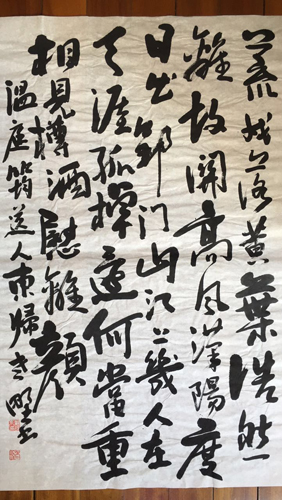 荒戍落黃葉浩然
離故關高風漢陽度
日出郢門山江上幾人在
天涯孤棹還何當重
相見樽酒慰離顏
溫庭筠送人東歸